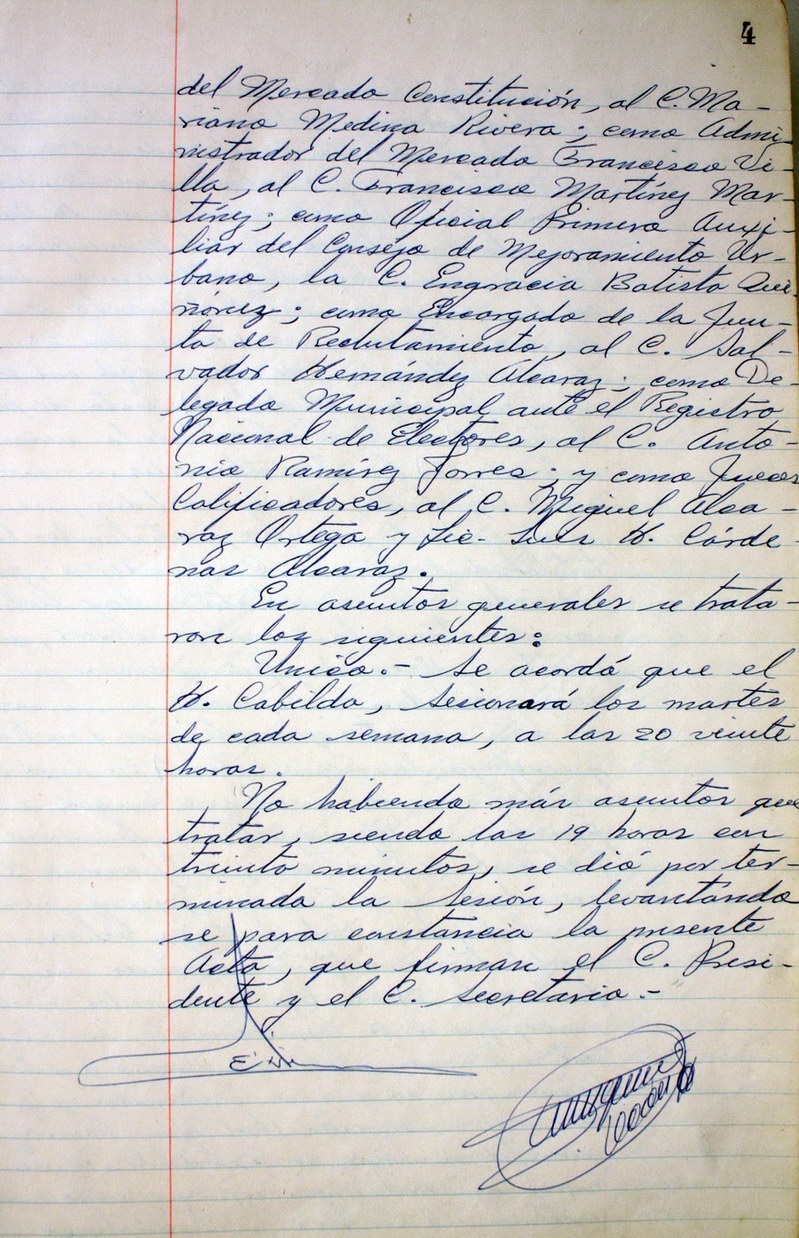 4
del Mercado Constitución, al C. Ma-
riano Medina Rivera; como Admi-
nistrador del Mercado Francisco Vi-
lla, al C. Francisco Martínez Mar-
tínez; como Oficial Primero Auxi-
liar del Consejo de Mejoramiento Ur-
bano, la C. Engracia Batista Qui-
ñónez; como Encargado de la Jun-
ta de Reclutamiento, al C. Sal-
vador Hernández Alcaraz; como De-
legado Municipal ante el Registro
Nacional de Electores, al C. Anto-
nio Ramírez Torres; y como Jueces
Calificadores, al C. Miguel Alca-
raz Ortega y Lic. Luis H. Cárde-
nas Alcaraz.
En asuntos generales se trata-
ron los siguientes:
Unico.- Se acordó que el
H. Cabildo, sesionará los martes
de cada semana, a las 20 veinte
horas.
No habiendo más asuntos que
tratar, siendo las 19 horas con
treinta minutos, se dió por ter-
minada la Sesión, levantándo
se para constancia la presente
Acta, que firman el C. Presi-
dente y el C. Secretario.-